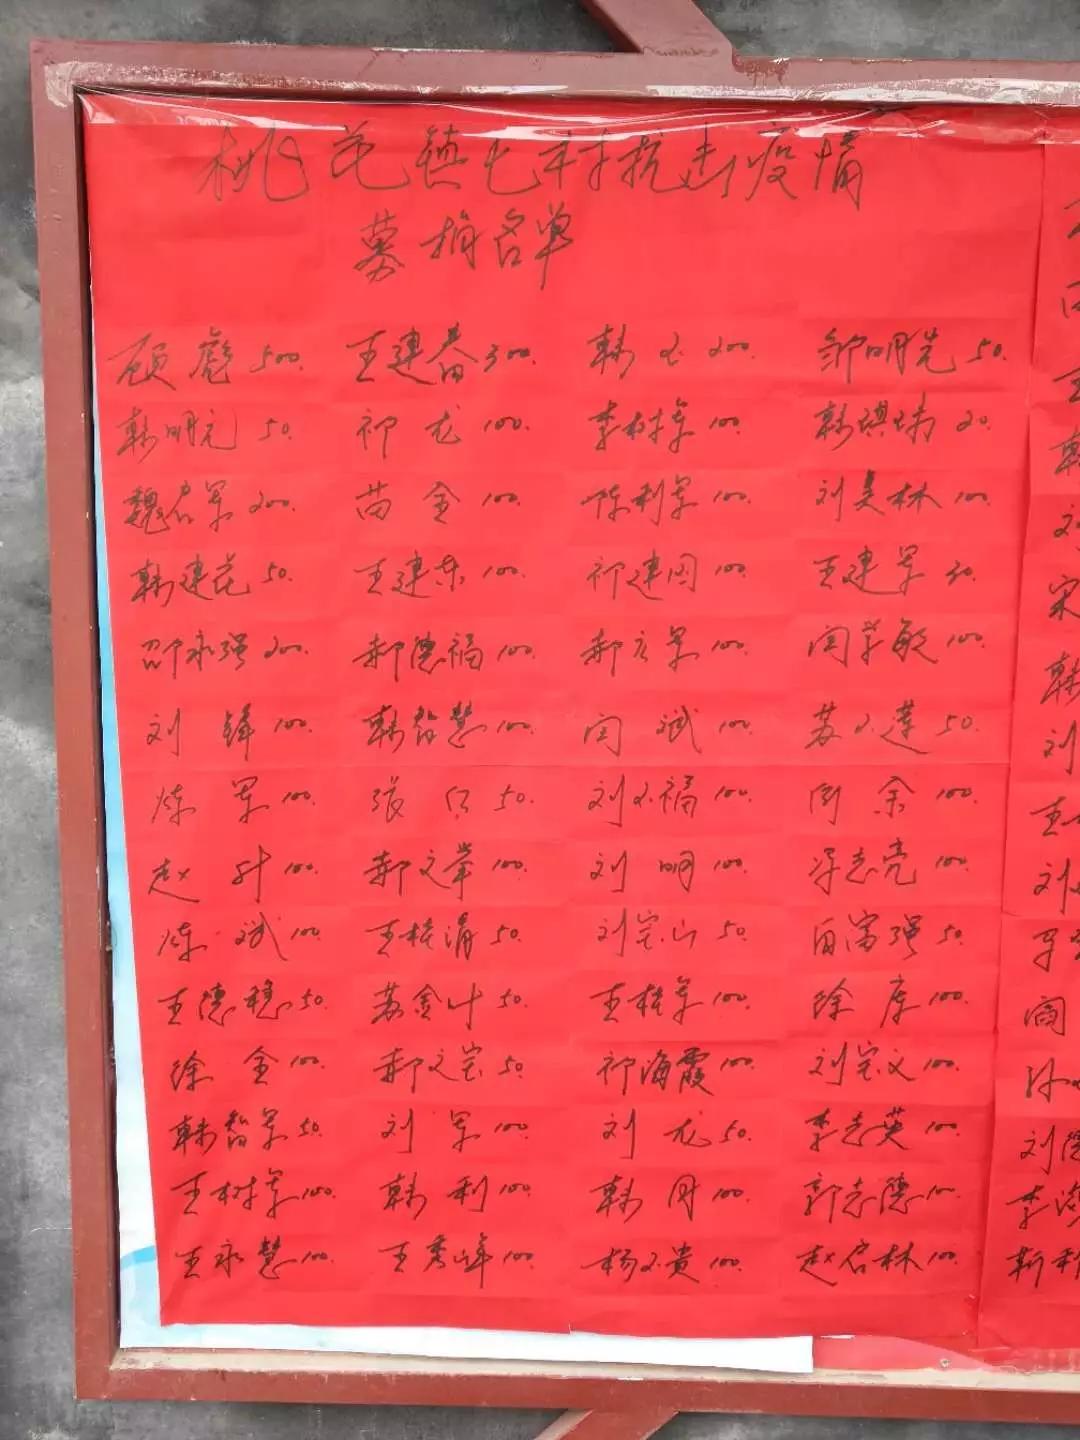 桃花镇七村抗击疫情
募捐名单
顾彪 500. 王建春 300. 韩 200. 邹明先 50.
韩明元 50. 祁龙 100. 李树军 100. 韩琪瑞 20.
魏启军 200. 苗金 100. 陈利军 100. 刘美林 100.
韩建花 50. 王建东 100. 祁建国 100. 王建军 30.
邵永强 200. 郝德福 100. 郝广军 100. 闫学敏 100.
刘锋 100. 韩智慧 100. 闫斌 100. 苏小莲 50.
炼军 100. 张 50. 刘福 100. 闫余 100.
赵升 100. 郝文举 100. 刘明 100. 梁志亮 100.
炼斌 100. 王桂清 50. 刘宝山 50. 白富强 50.
王德稳 50. 苏金叶 50. 王桂军 100. 徐库 100.
徐金 100. 郝文宝 50. 祁海霞 100. 刘宝义 100.
韩智军 50. 刘军 100. 刘龙 50. 李志英 100.
王树军 100. 韩利 100. 韩月 100. 郭志德 100.
王永慧 100. 王秀峰 100. 杨贵 100. 赵启林 100.